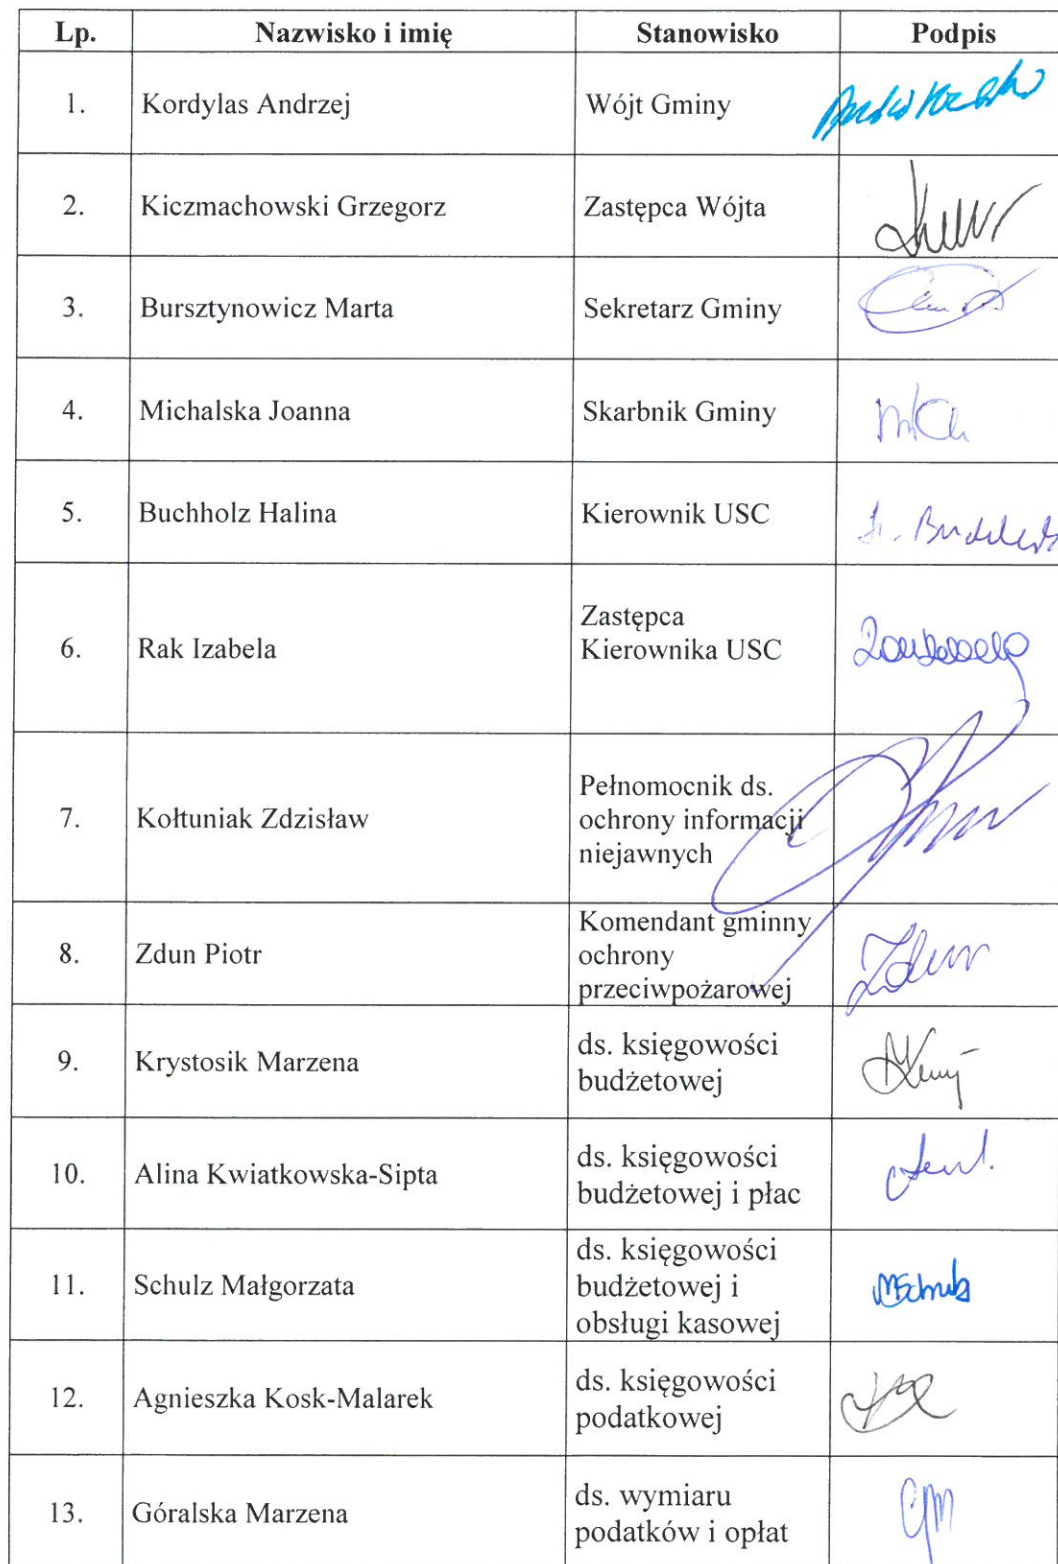 Lp. Nazwisko i imię Stanowisko Podpis
1. Kordylas Andrzej Wójt Gminy
2. Kiczmachowski Grzegorz Zastępca Wójta
3. Bursztynowicz Marta Sekretarz Gminy
4. Michalska Joanna Skarbnik Gminy
5. Buchholz Halina Kierownik USC
Zastępca
6. Rak Izabela Kierownika USC
Pełnomocnik ds.
7. Kołtuniak Zdzisław ochrony informacji
niejawnych
Komendant gminny
8. Zdun Piotr ochrony Zdun
przeciwpożarowej
9. Krystosik Marzena ds. księgowości
budżetowej
10. Alina Kwiatkowska-Sipta ds. księgowości
budżetowej i płac
ds. księgowości
11. Schulz Małgorzata budżetowej i MSchulz
obsługi kasowej
12. Agnieszka Kosk-Malarek ds. księgowości
podatkowej
13. Góralska Marzena ds. wymiaru GM
podatków i opłat